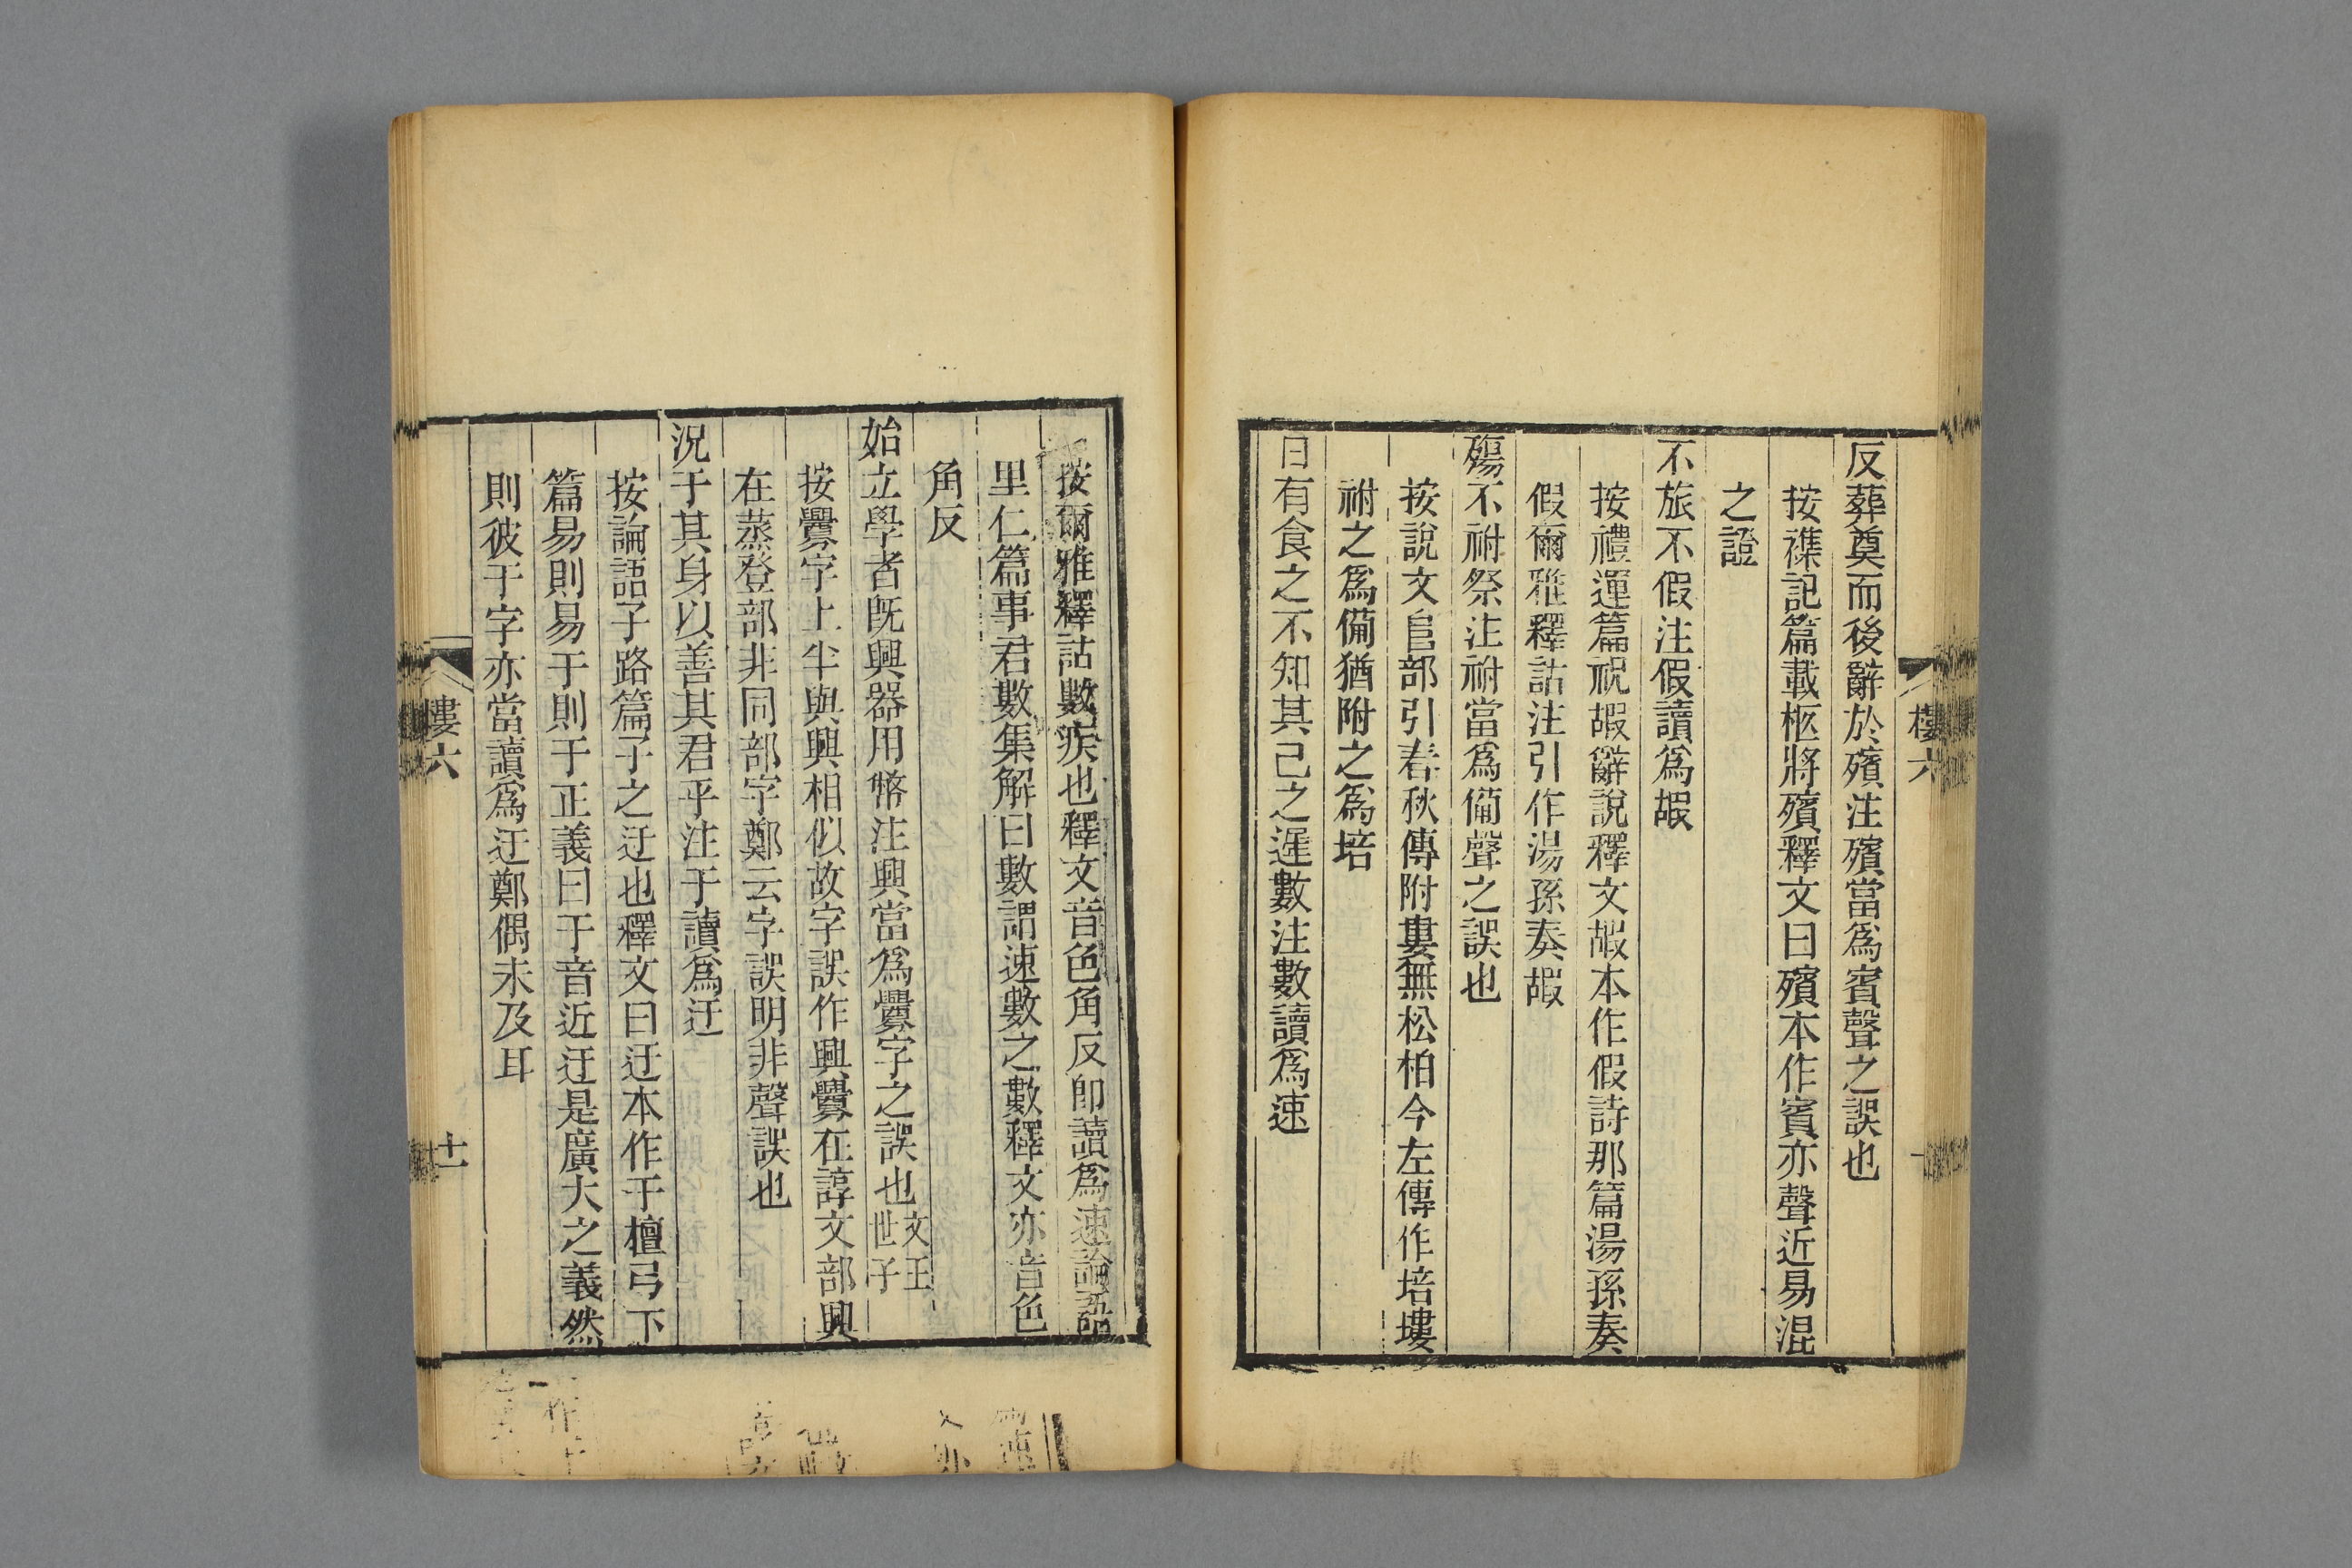 反葬奠而後辭於殯注殯當爲賓聲之誤也
按襍記篇載柩將殯釋文曰殯本作賓亦聲近易混
之證
不旅不假注假讀爲嘏
按禮運篇祝嘏辭說釋文嘏本作假詩那篇湯孫奏
假爾雅釋詁注引作湯孫奏嘏
殤不祔祭注祔當爲備聲之誤也
按說文𨸏部引春秋傳附婁無松柏今左傳作培塿
祔之爲備猶附之爲培
曰有食之不知其己之遲數注數讀爲速
樓六
按爾雅釋詁數疾也釋文音色角反卽讀爲速論語
里仁篇事君數集解曰數謂速數之數釋文亦音色
角反
始立學者旣興器用幣注興當爲釁字之誤也文王世子
按釁字上半與興相似故字誤作興釁在諄文部興
在蒸登部非同部字鄭云字誤明非聲誤也
況于其身以善其君乎注于讀爲迂
按論語子路篇子之迂也釋文曰迂本作于檀弓下
篇易則易于則于正義曰于音近迂是廣大之義然
則彼于字亦當讀爲迂鄭偶未及耳
樓六
十一